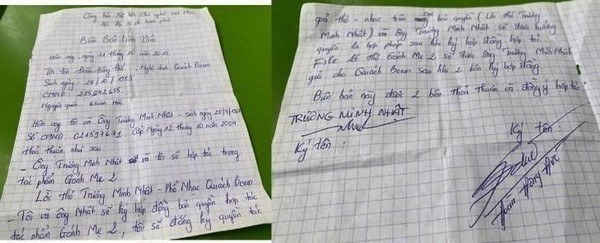 Cộng hòa Xã hội Chủ nghĩa Việt Nam
Độc lập Tự do Hạnh phúc
Biên Bản Làm Việc
Hôm nay, ngày 21 tháng 10 năm
Tôi tên Hồng Thế - Nghệ danh Quách Beem
Sinh ngày 24/10/
CMND: 225642655
Nguyên quán Khánh Hòa
Hôm nay tôi và Ông Trương Minh Nhật - sinh ngày
Số CMND: cấp Ngày 22 tháng 10 năm 2004
thỏa thuận như sau
- Ông Trương Minh Nhật và tôi sẽ hợp tác trong
tác phẩm Gánh Mẹ 2
Lời thơ Trương Minh Nhật - Phổ Nhạc Quách Beem
- Tôi và ông Nhật sẽ ký hợp đồng bản quyền hợp tác
tác phẩm Gánh Mẹ 2, tôi sẽ đồng ký quyền tác
giả thơ - nhạc trên bản quyền (Lời thơ Trương
Minh Nhật) và Ông Trương Minh Nhật sẽ được hưởng
quyền lợi hợp pháp sau khi ký hợp đồng hợp tác.
File Lời thơ Gánh Mẹ 2 sẽ được Ông Trương Minh Nhật
gửi cho Quách Beem sau khi 2 bên ký hợp đồng
Biên bản này được 2 bên thỏa thuận và đồng ý hợp tác
TRƯƠNG MINH NHẬT
Ký tên:
Ký tên: